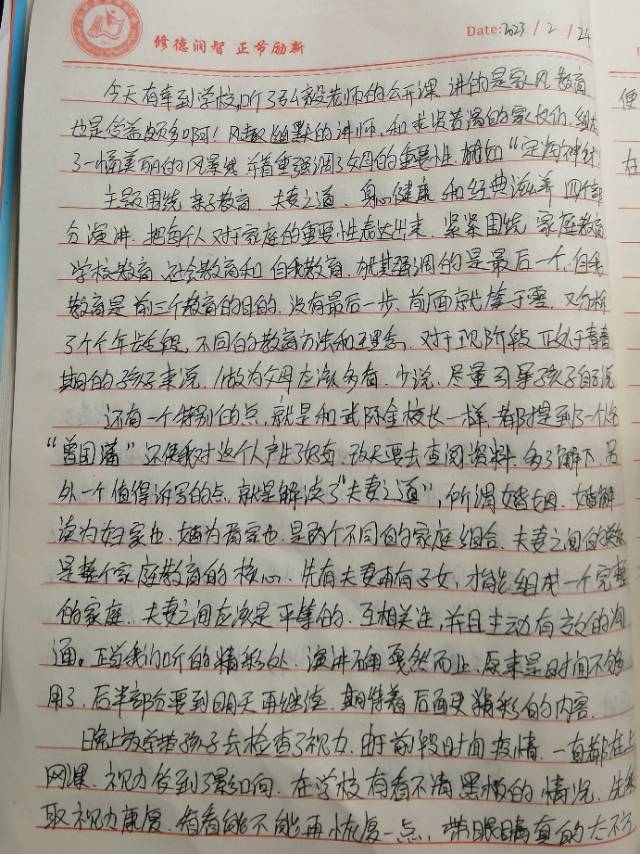 修德润智 正节励新
Date: 2023 / 2 / 24
今天有幸到学校,听了 老师的公开课.讲的是家风教育
也是受益颇多啊!风趣幽默的讲师,和 的家长们,组成
了一幅美丽的风景线.并着重强调了父母的重要性.犹如“定海神针”
主题围绕 亲子教育、夫妻之道、身心健康 和经典滋养 四个部
分演讲.把每个人对于家庭的重要性表达出来.紧紧围绕 家庭教育
学校教育 社会教育和 自我教育.尤其强调的是最后一个.自我
教育是前三个教育的目的.没有最后一步.前面就等于零.又分析
了个个年龄段,不同的教育方法和理念.对于现阶段 正处于青春
期的孩子来说,做为父母应该多看.少说.尽量引导孩子自己说
还有一个特别的点,就是和武 校长一样,都提到了一个人名
“曾国藩”还使我对这个人产生了好奇.改天要去查阅资料.多了解下.另
外一个值得诉写的点,就是解读了“夫妻之道”,何谓婚姻.婚解
读为妇家也.姻为 家也.是两个不同的家庭组合.夫妻之间的
是整个家庭教育的核心.先有夫妻再有子女,才能组成一个完整
的家庭.夫妻之间应该是平等的.互相关注,并且主动有效的沟
通。正当我们听的精彩处.演讲 戛然而止.原来是时间不够
用了.后半部分要到明天再继续.期待着后面更精彩的内容.
晚上放学带孩子去检查了视力.由于前段时间疫情.一直都在上
网课.视力受到了影响.在学校有看不清黑板的情况.先采
取视力康复.看看能不能再恢复一点,带眼睛真的太不方
便
在